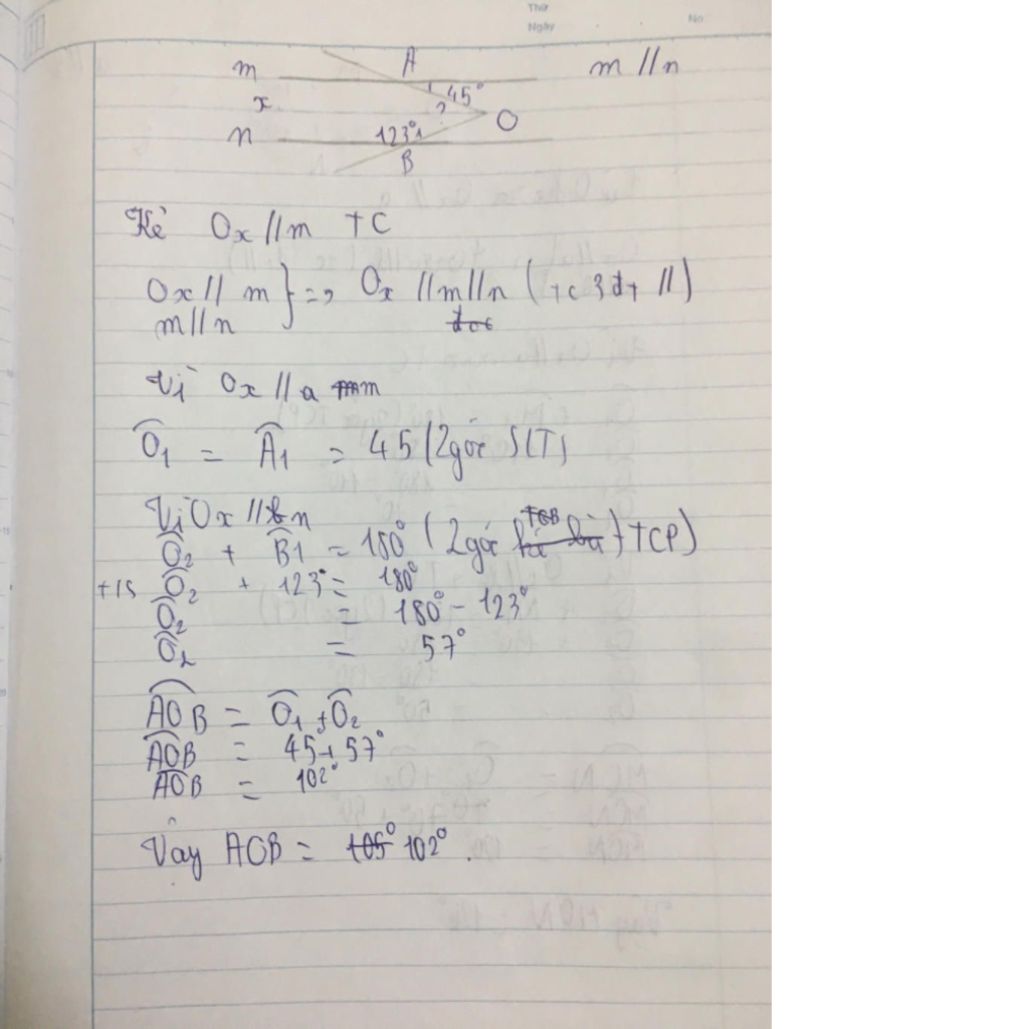 Thứ
Ngày
No
m A m // n
x 1 45°
2 O
n 123° 1
B
Kẻ Ox // m TC
Ox // m } => Ox // m // n (tc 3đt //)
m // n
Vì Ox // a m
Ô1 = Â1 = 45 (2 góc SLT)
Vì Ox // n
Ô2 + B̂1 = 180° (2 góc TCP)
+15 Ô2 + 123° = 180°
Ô2 = 180° - 123°
Ô2 = 57°
AOB = Ô1 + Ô2
AOB = 45 + 57°
AOB = 102°
Vậy AOB = 105° 102°.